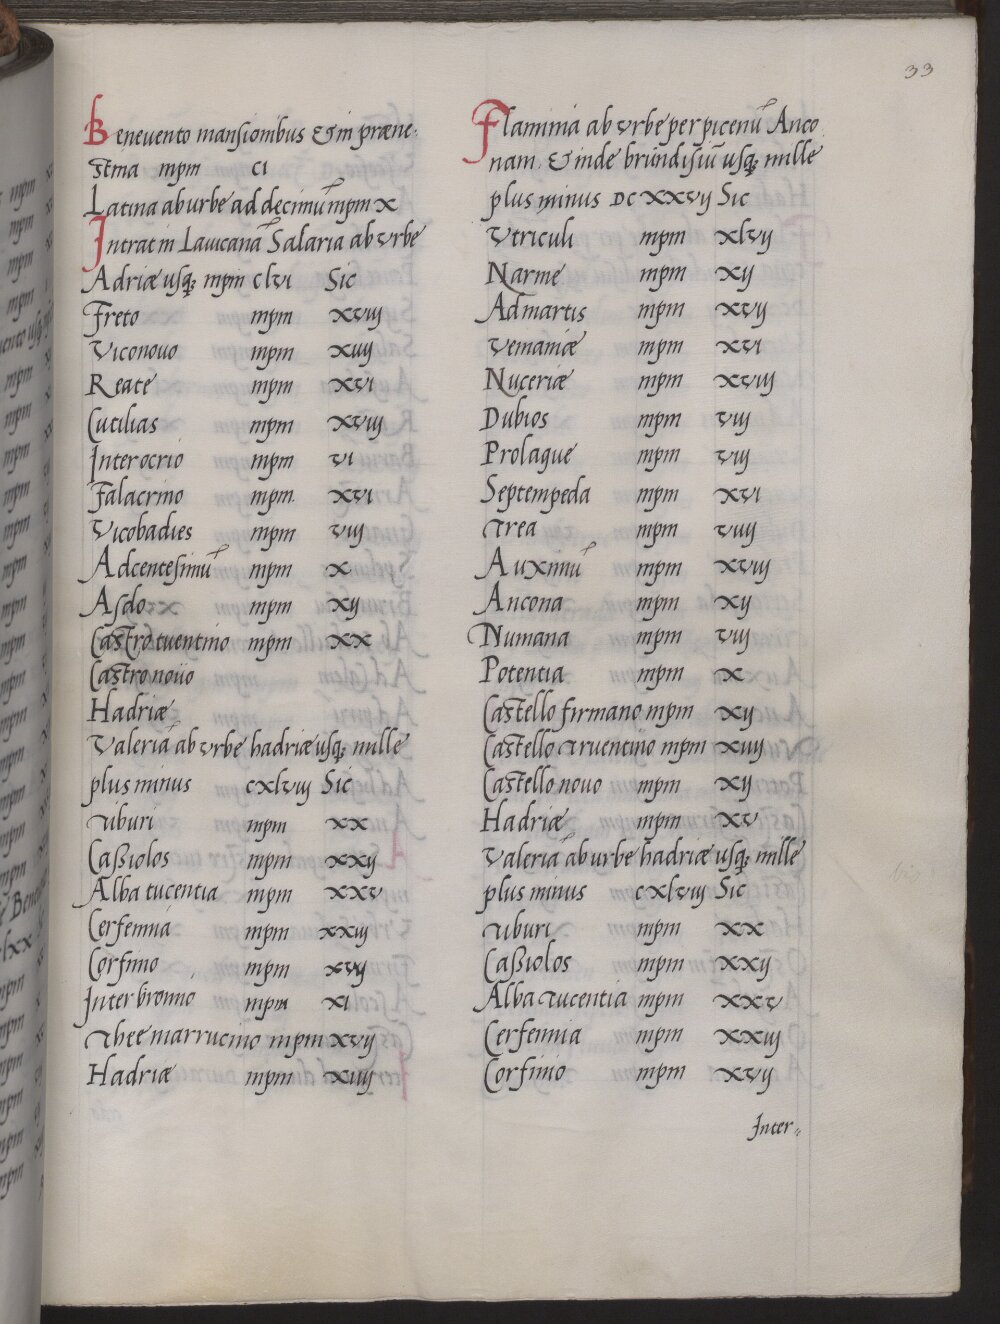 33
Beneuento mansionibus & in præne-
stina mpm CI
Latina ab urbe ad decimũ mpm X
Intrat in Lauicanã Salaria ab vrbe
Adriæ usq; mpm clvi Sic
Freto mpm xviij
Viconouo mpm xiiij
Reate mpm xvi
Cutilias mpm xviij
Interocrio mpm vi
Falacrino mpm xvi
Vicobadies mpm viij
Adcentesimũ mpm x
Asclo mpm xij
Castro tuentino mpm xx
Castro nouo
Hadriæ
Valeria ab vrbe hadriæ usq; mille
plus minus cxlviij Sic
Tiburi mpm xx
Caßiolos mpm xxij
Alba tucentia mpm xxv
Cerfennia mpm xxiij
Corfinio mpm xvij
Inter bronnio mpm xi
Thee marrucino mpm xvij
Hadriæ mpm xiiij
Flaminia ab vrbe per picenũ Anco
nam & inde brundisiũ usq; mille
plus minus DCXXVIJ Sic
Vtriculi mpm xlvij
Narme mpm xij
Admartis mpm xvij
Vemaniæ mpm xvi
Nuceriæ mpm xviij
Dubios mpm viij
Prolaque mpm viij
Septempeda mpm xvi
Trea mpm viiij
Auximũ mpm xviij
Ancona mpm xij
Numana mpm viij
Potentia mpm x
Castello firmano mpm xij
Castello truentino mpm xiiij
Castello nouo mpm xij
Hadriæ mpm xv
Valeria ab urbe hadriæ usq; mille
plus minus cxlviij Sic
Tiburi mpm xx
Caßiolos mpm xxij
Alba tucentia mpm xxv
Cerfennia mpm xxiij
Corfinio mpm xvij
Inter-